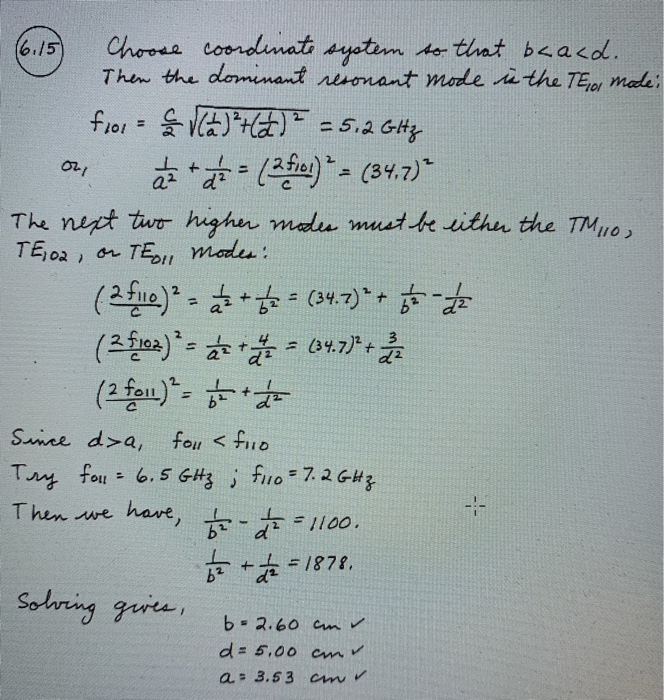 6.15 Choose coordinate system so that b<a<d.
Then the dominant resonant mode is the TE₁₀₁ mode:
f₁₀₁ = c/2 √((1/a)²+(1/d)²) = 5.2 GHz
or, 1/a² + 1/d² = (2f₁₀₁/c)² = (34.7)²
The next two higher modes must be either the TM₁₁₀,
TE₁₀₂, or TE₀₁₁ modes:
(2f₁₁₀/c)² = 1/a² + 1/b² = (34.7)² + 1/b² - 1/d²
(2f₁₀₂/c)² = 1/a² + 4/d² = (34.7)² + 3/d²
(2f₀₁₁/c)² = 1/b² + 1/d²
Since d>a, f₀₁₁ < f₁₁₀
Try f₀₁₁ = 6.5 GHz ; f₁₁₀ = 7.2 GHz
Then we have, 1/b² - 1/d² = 1100.
1/b² + 1/d² = 1878.
Solving gives,
b = 2.60 cm ✓
d = 5.00 cm ✓
a = 3.53 cm ✓